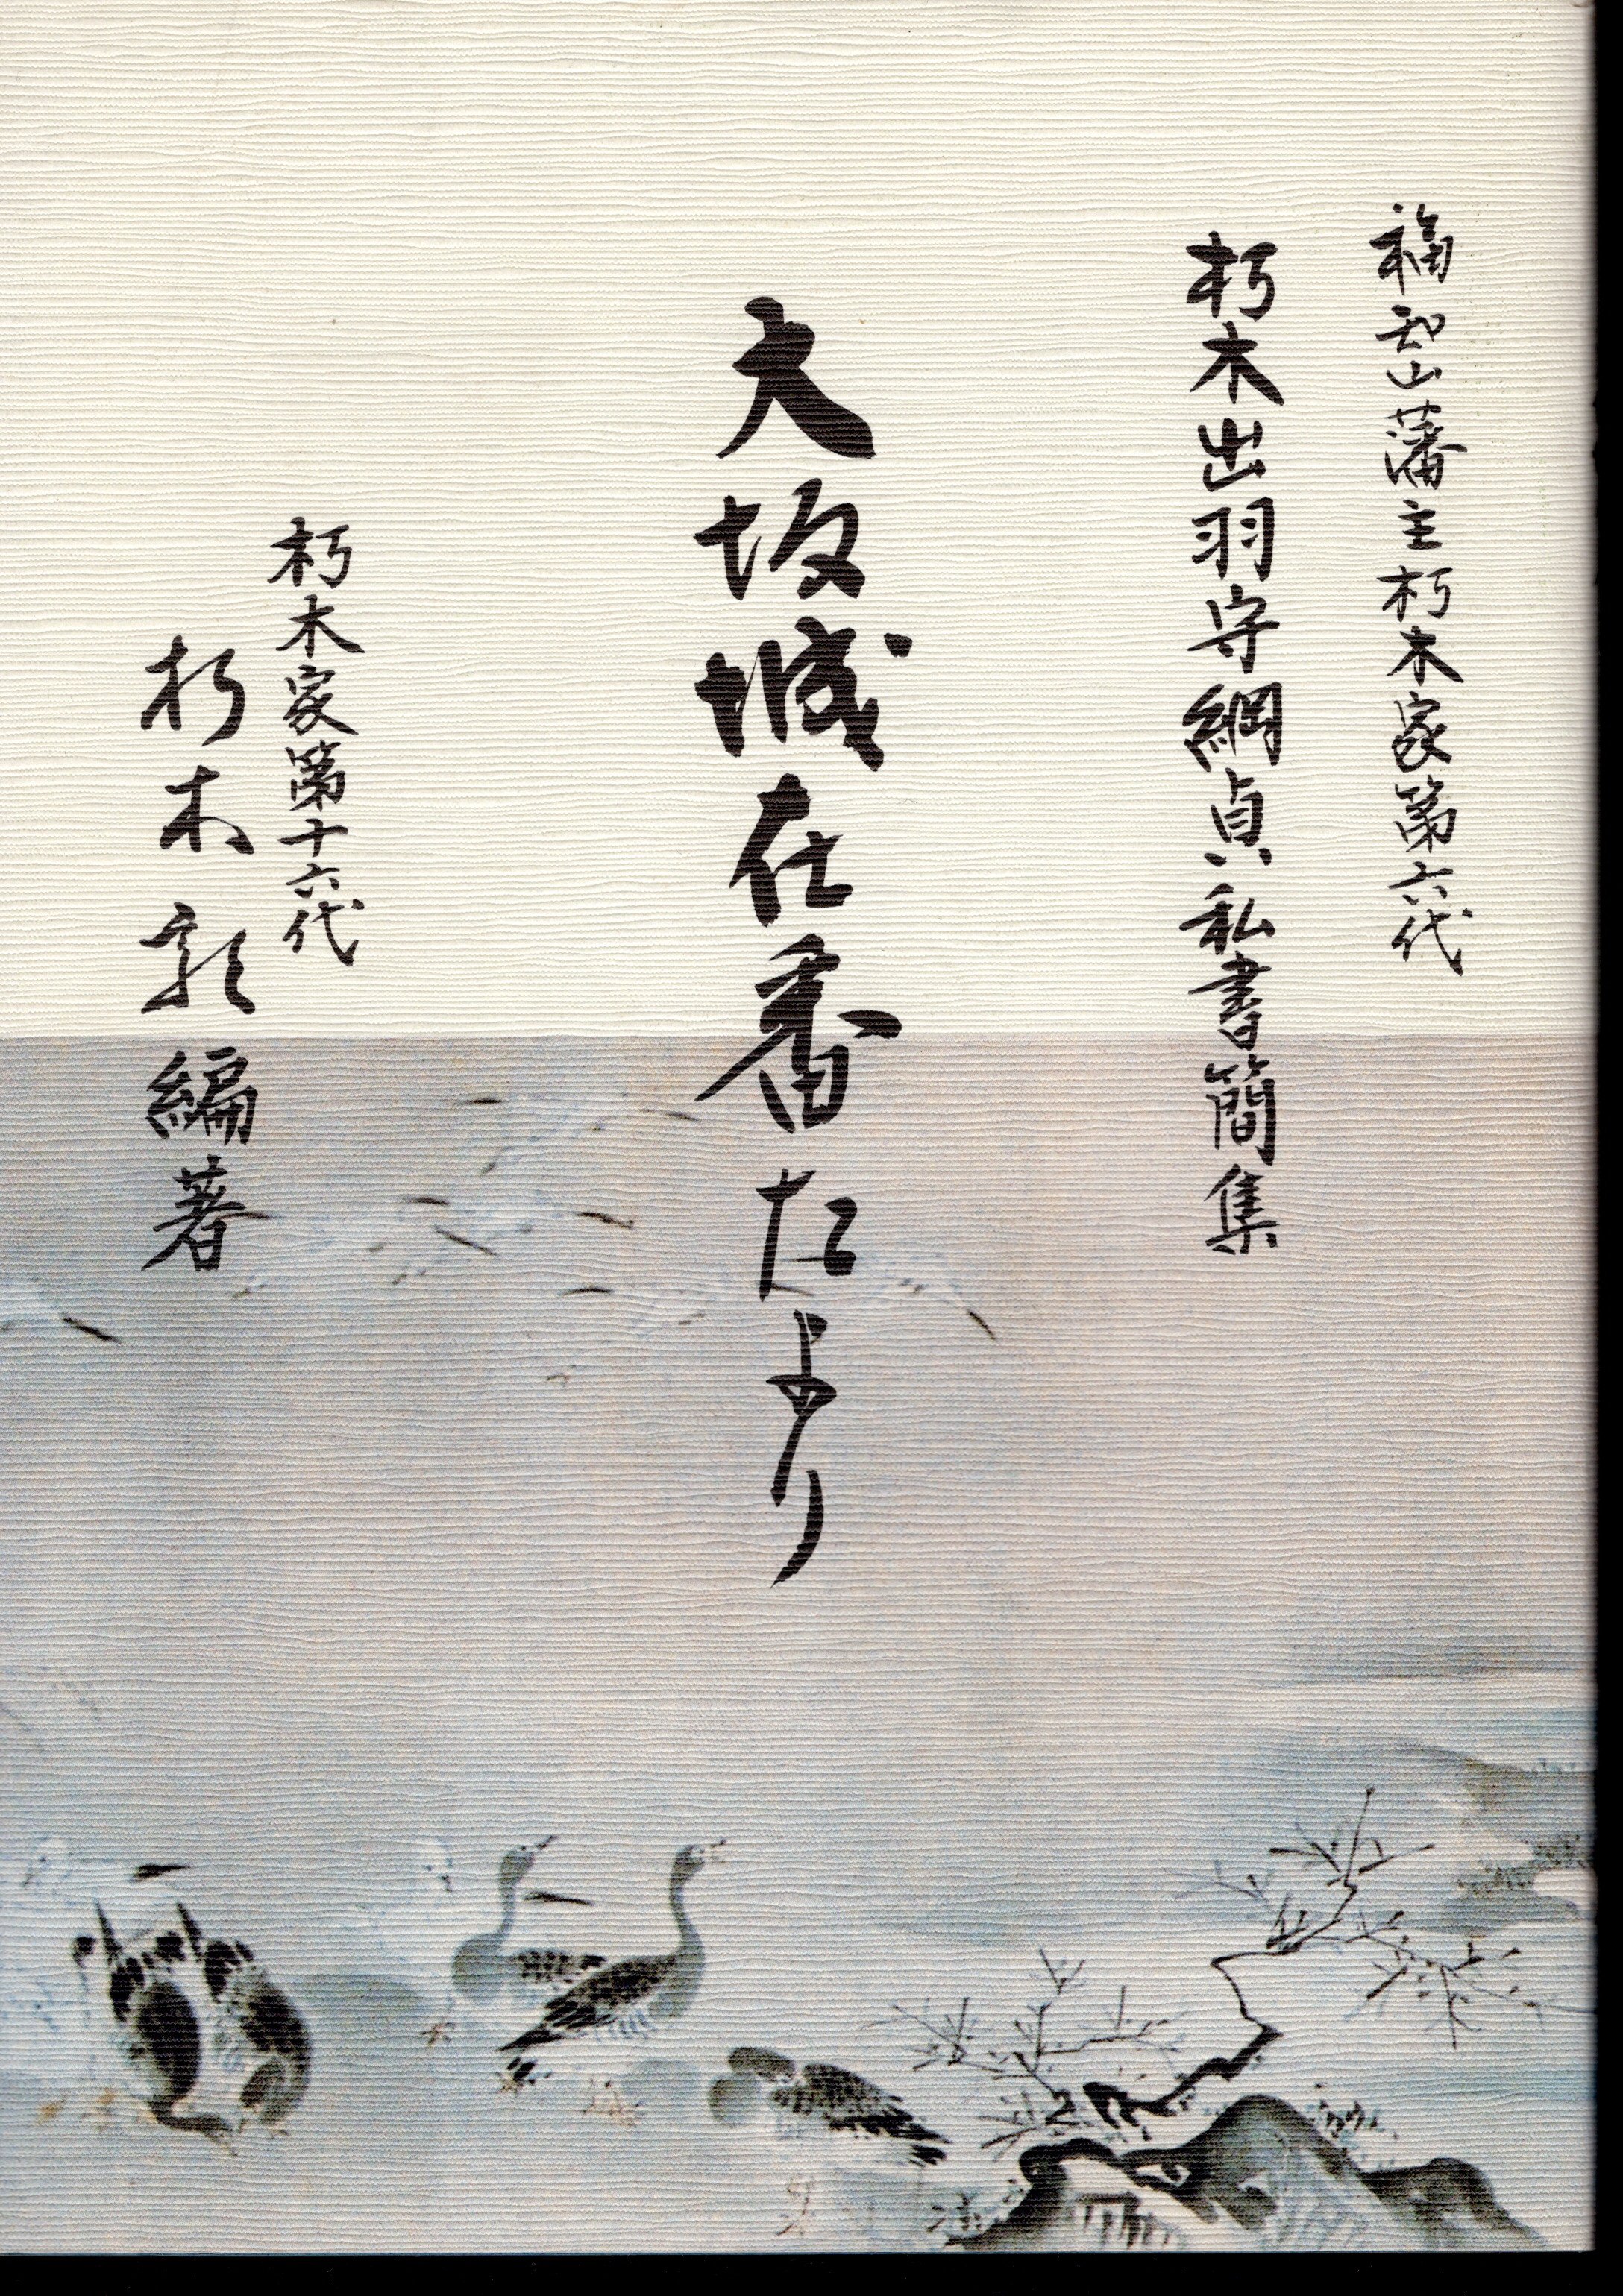 福知山藩主朽木家第六代
朽木出羽守綱貞私書簡集
大坂城在番たより
朽木家第十六代
朽木 編著